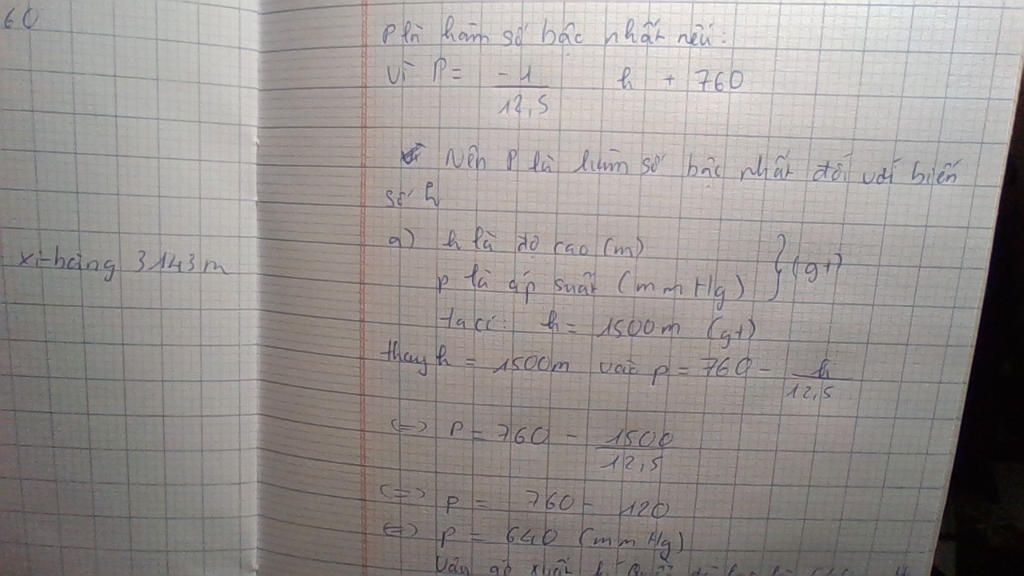 60
xi-băng 3143m
P là hàm số bậc nhất nếu:
vì P = -1/12,5 h + 760
Nên P là hàm số bậc nhất đối với biến
số h
a) h là độ cao (m)
p là áp suất (mmHg) } (gt)
ta có: h = 1500m (gt)
thay h = 1500m vào p = 760 - h/12,5
<=> P = 760 - 1500/12,5
<=> P = 760 - 120
<=> P = 640 (mmHg)
Vậy áp suất